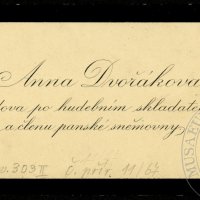 Anna Dvořákova
dova po hudebním skladatel
a členu panské sněmovny.
v. 303 II
Č. přír. 11/67.
MUSAE